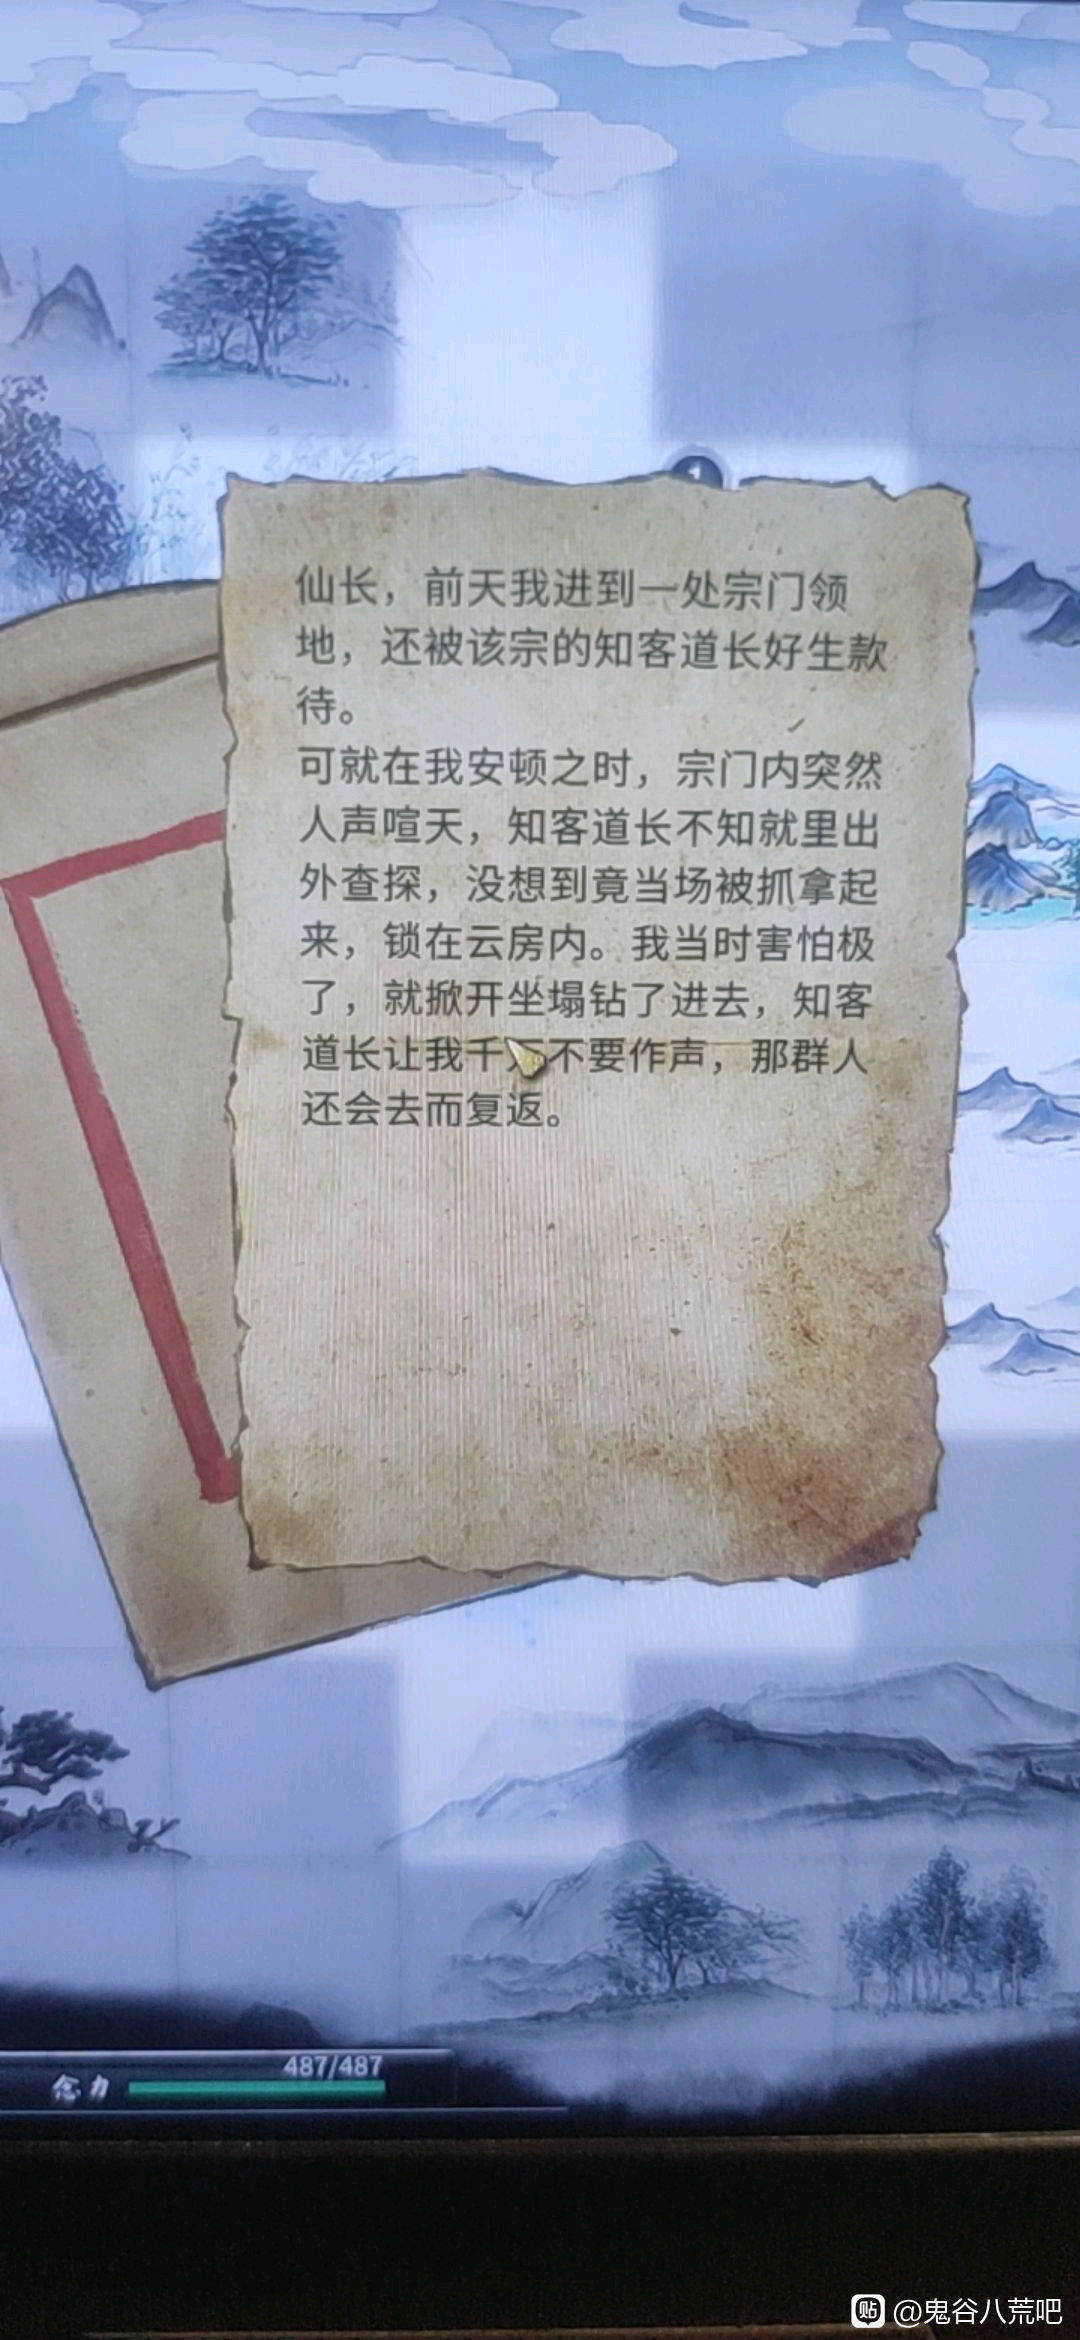 仙长，前天我进到一处宗门领
地，还被该宗的知客道长好生款
待。
可就在我安顿之时，宗门内突然
人声喧天，知客道长不知就里出
外查探，没想到竟当场被抓拿起
来，锁在云房内。我当时害怕极
了，就掀开坐塌钻了进去，知客
道长让我千万不要作声，那群人
还会去而复返。
487/487
念力
贴 @鬼谷八荒吧